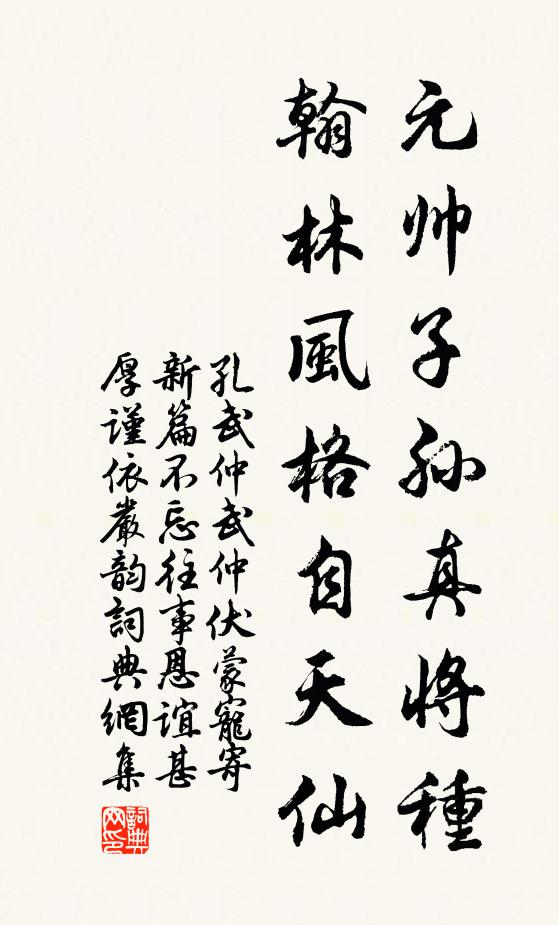 元帅子孙真将種
翰林風格自天仙
孔武仲武仲伏蒙寵寄
新篇不忘往事恩誼甚
厚谨依嚴韵詞典網集
詞典网印